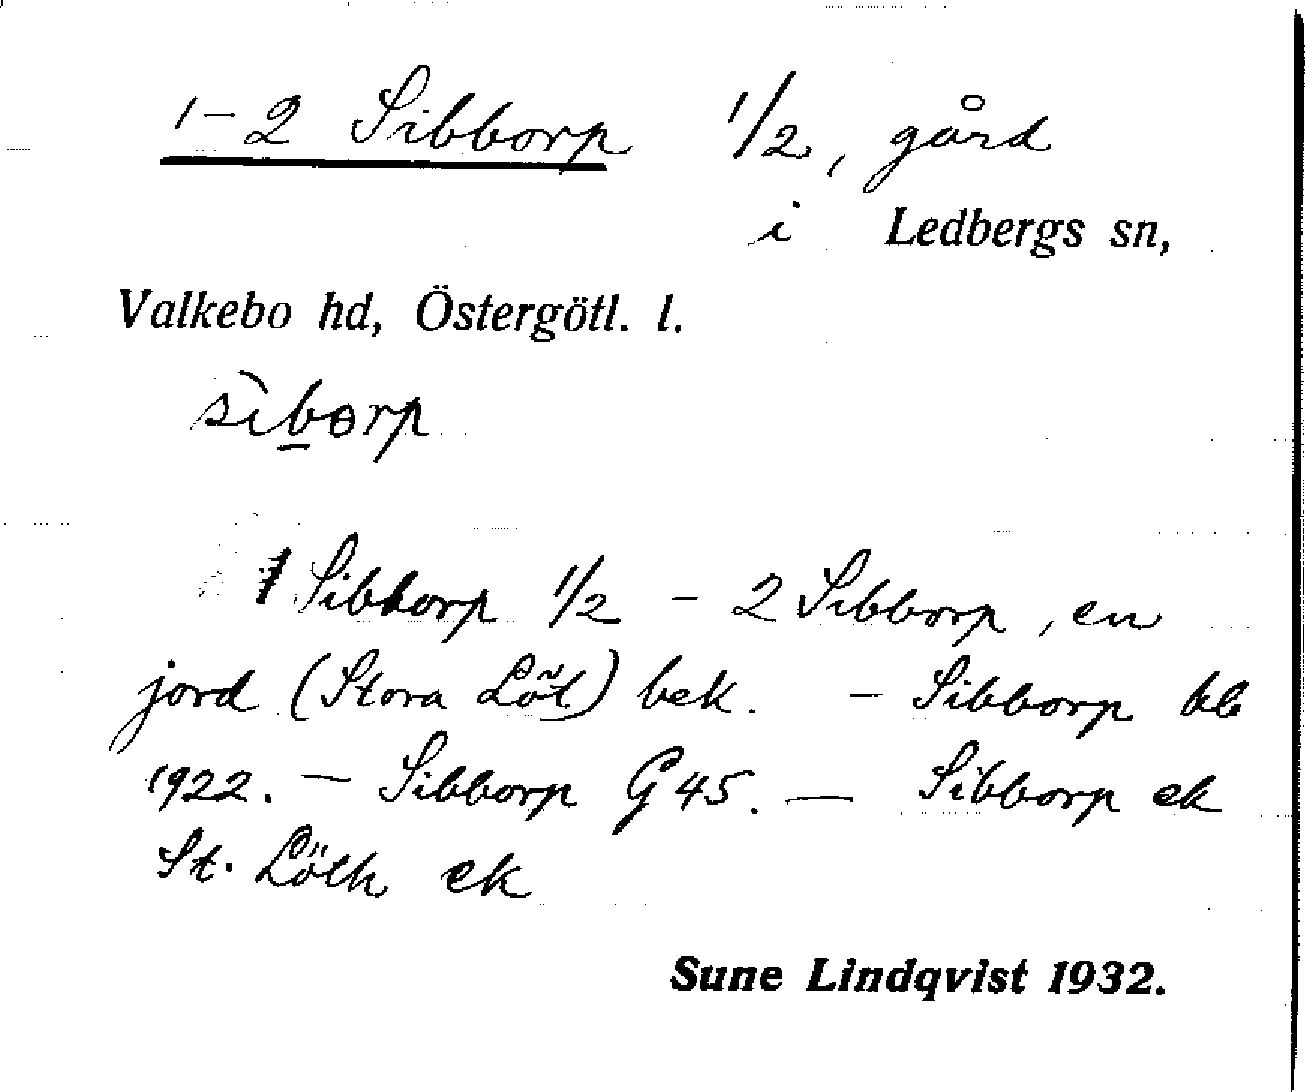 1-2 Sibborp 1/2, gård
i Ledbergs sn,
Valkebo hd, Östergötl. l.
sìbɵrp
1 Sibborp 1/2 - 2 Sibborp, en
jord (Stora Löt) bek. - Sibborp kb
1922. - Sibborp G 45. - Sibborp ek
St. Löth ek
Sune Lindqvist 1932.